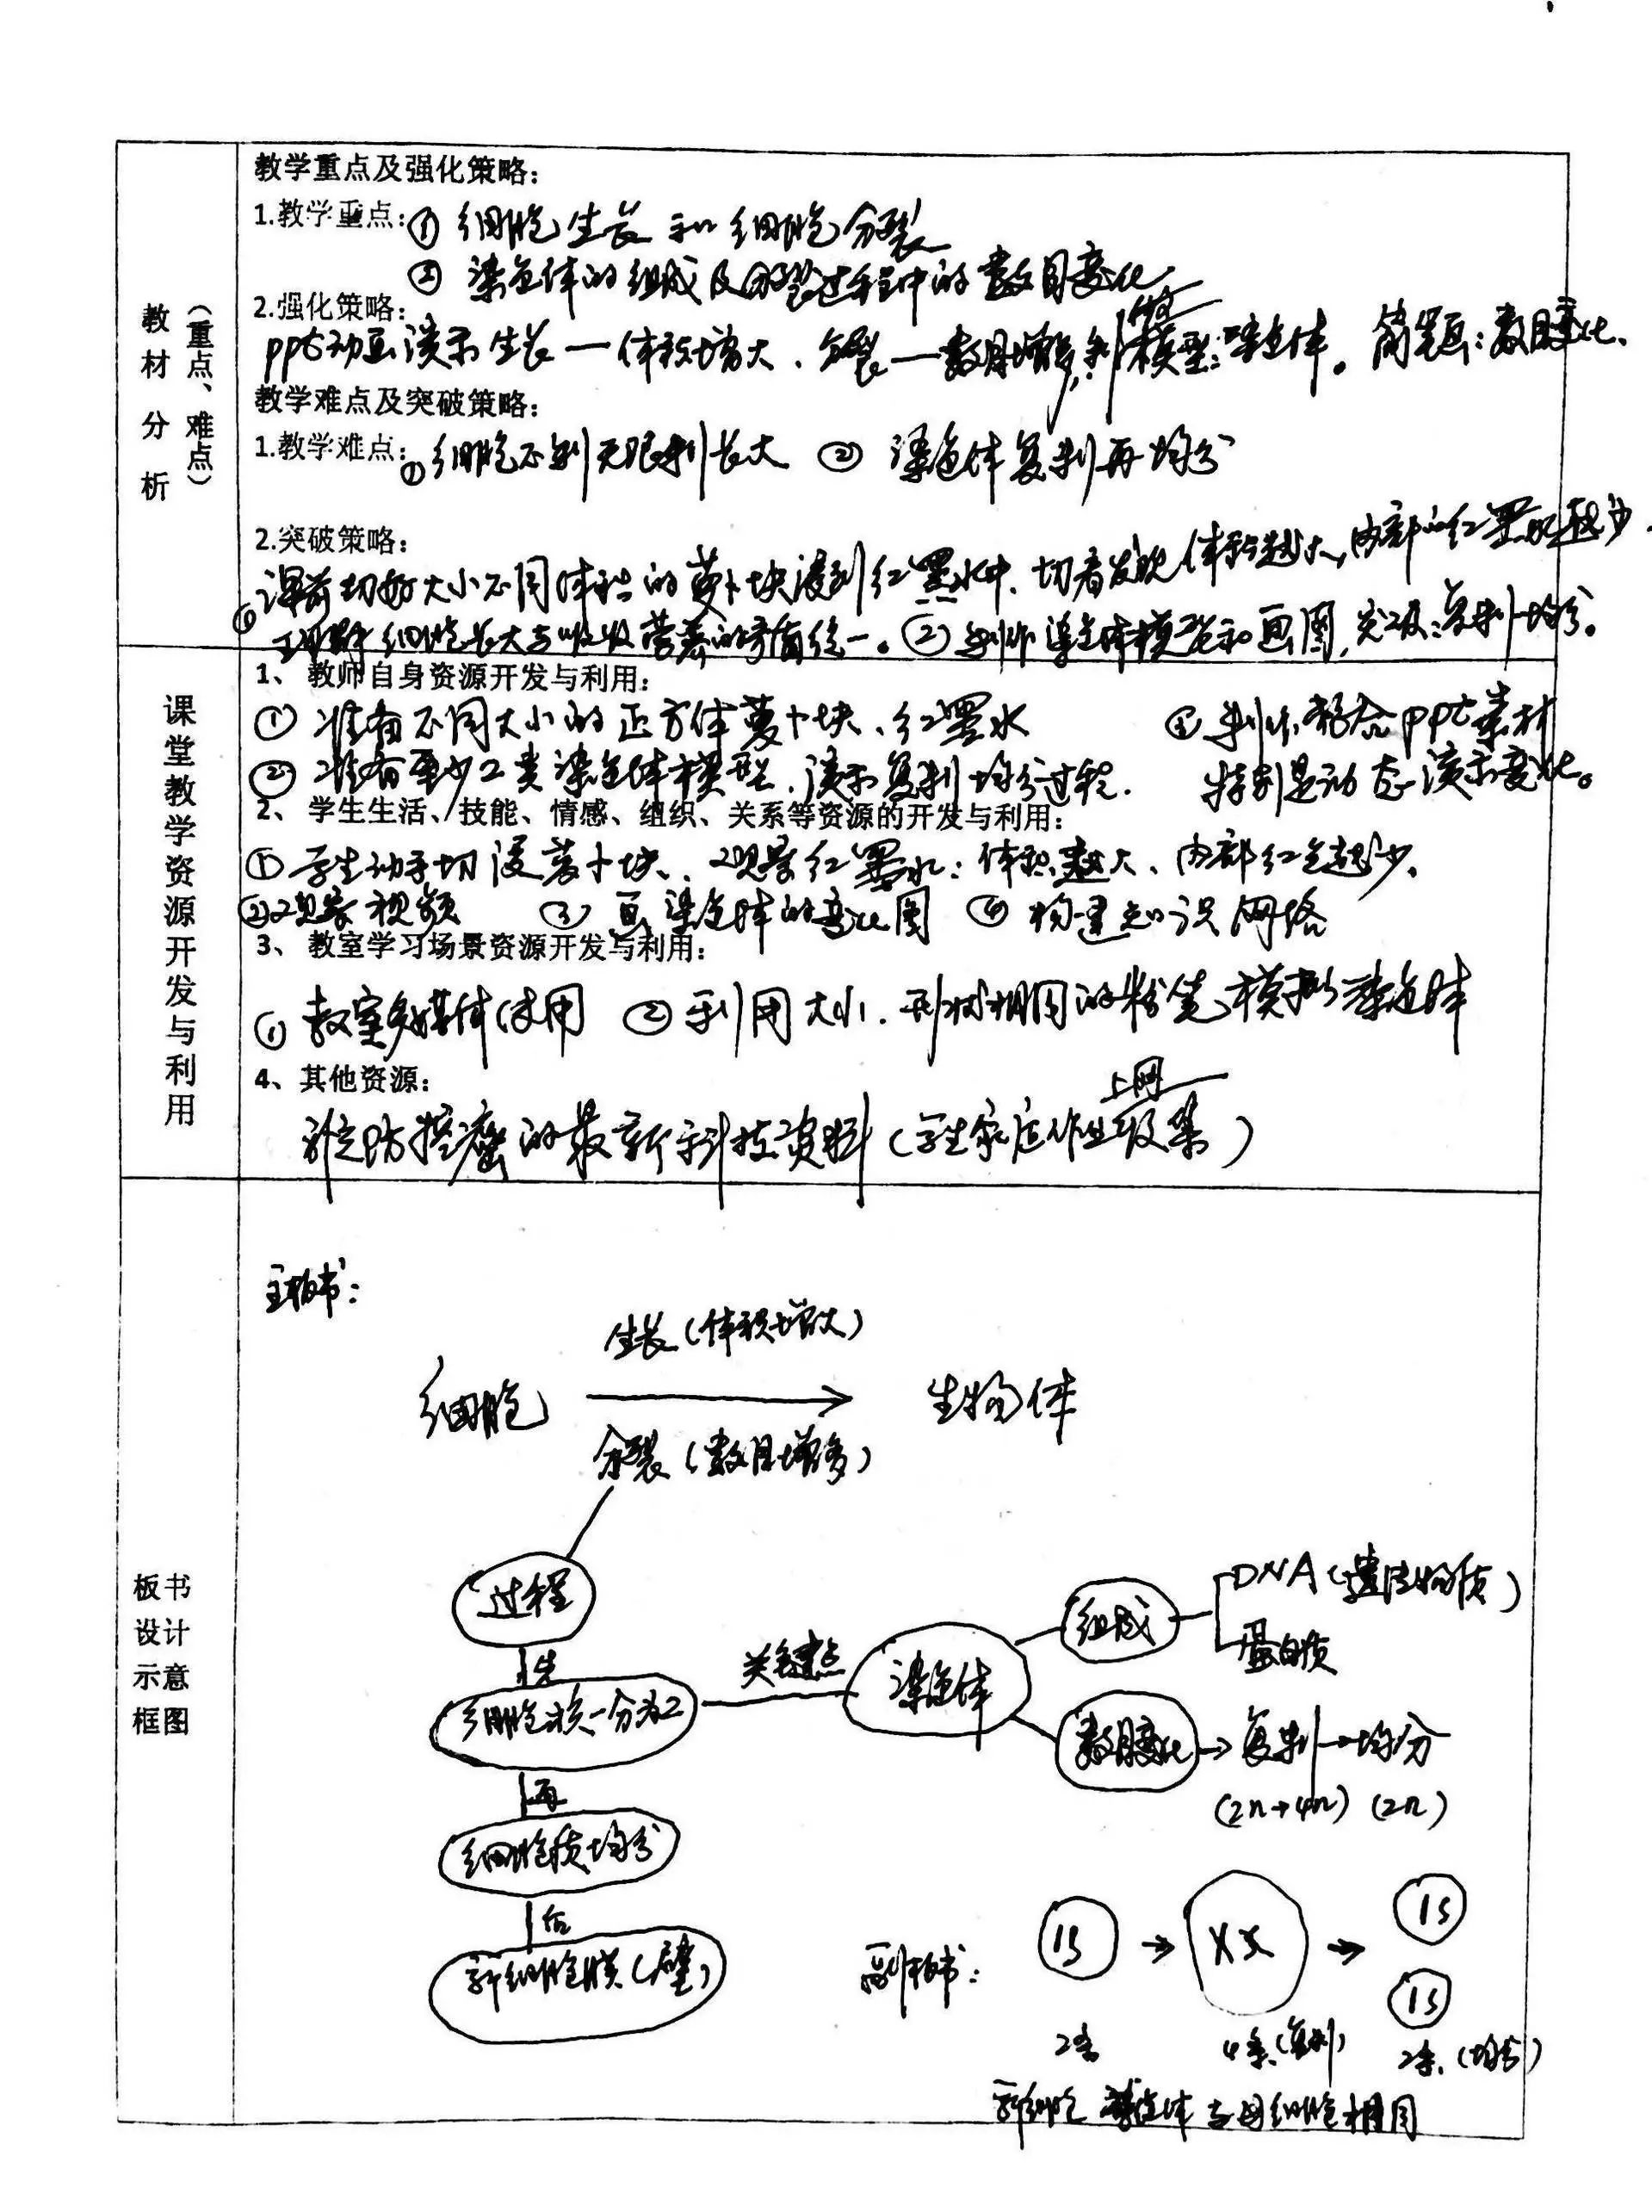 教材分析
(重点、难点)
教学重点及强化策略:
1.教学重点: ① 细胞生长 和 细胞分裂
② 染色体的组成及分裂过程中的数目变化
2.强化策略:
ppt动画演示生长—体积增大、分裂—数目增多,制作模型:染色体。简笔画:数目变化.
教学难点及突破策略:
1.教学难点: ① 细胞不能无限制长大 ② 染色体复制再均分
2.突破策略:
① 课前切好大小不同体积的萝卜块浸到红墨水中.切看发现体积越大,内部的红墨水越少.
理解细胞长大与吸收营养的矛盾统一。② 制作染色体模型和画图,突破:复制—均分。
课堂教学资源开发与利用
1、教师自身资源开发与利用:
① 准备不同大小的正方体萝卜块、红墨水
② 准备至少2类染色体模型,演示复制均分过程.
③ 制作整合ppt素材
特别是动态演示变化。
2、学生生活、技能、情感、组织、关系等资源的开发与利用:
① 学生动手切浸萝卜块、观察红墨水:体积越大、内部红色越少.
② 观察视频 ③ 画染色体的变化图 ④ 构建知识网络
3、教室学习场景资源开发与利用:
① 教室多媒体使用 ② 利用大小.形状相同的粉笔模拟染色体
4、其他资源:
防控癌的最新科技资料(学生家庭作业上网收集)
板书设计示意框图
主板书:
生长(体积增大)
细胞 → 生物体
分裂(数目增多)
过程
先
细胞核一分为2
关键点
染色体
组成
DNA(遗传物质)
蛋白质
数目变化→复制→均分
(2n→4n) (2n)
再
细胞质均分
后
新细胞膜(壁)
副板书:
2条 4条(复制) 2条.(均分)
新细胞 染色体 与母细胞相同